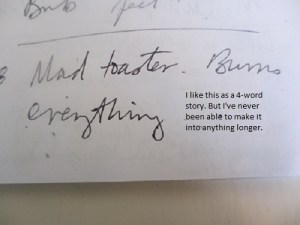 Bnb feet
Mad toaster. Burns
everything
I like this as a 4-word
story. But I've never
been able to make it
into anything longer.